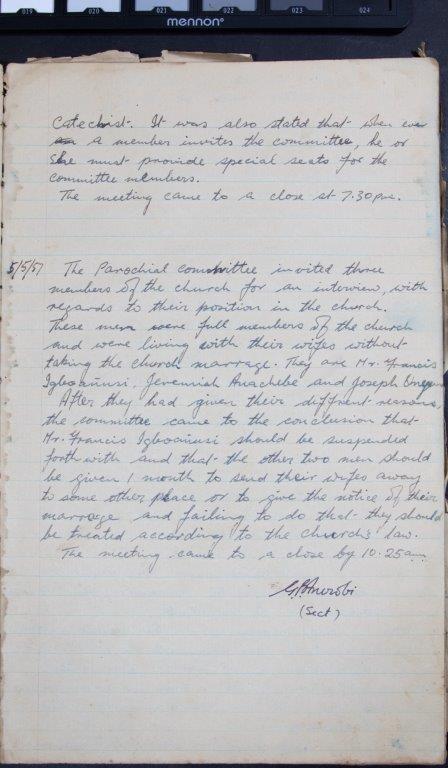 019 020 021 022 023 024
mennon
Catechist. It was also stated that when ever
a member invites the committee, he or
She must provide special seats for the
committee members.
The meeting came to a close at 7.30pm.
5/5/57 The Parochial committee invited three
members of the church for an interview, with
regards to their position in the church.
These men were full members of the church
and were living with their wifes without
taking the church marrage. They are Mr. Francis
Igboanusi, Jeremiah Anachebe and Joseph
After they had given their diffrent reasons
the committee came to the conclusion that
Mr. Francis Igboanusi should be suspended
forth with and that the other two men should
be given 1 month to send their wifes away
to some other place or to give the notice of their
marrage and failing to do that they should
be treated according to the church's law.
The meeting came to a close by 10.25am
(Sect)